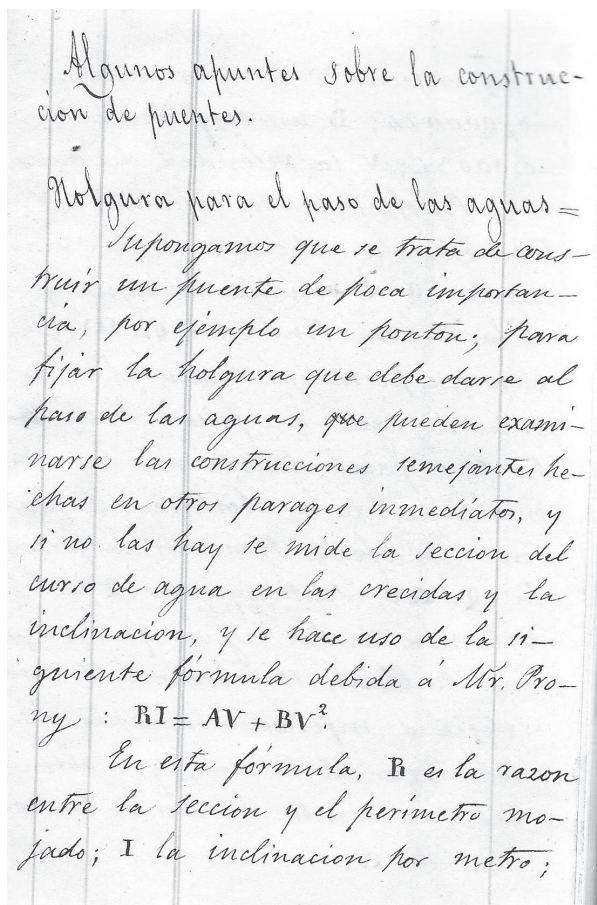 Algunos apuntes sobre la construc-
cion de puentes.
Holgura para el paso de las aguas=
Supongamos que se trata de cons-
truir un puente de poca importan-
cia, por ejemplo un ponton; para
fijar la holgura que debe darse al
paso de las aguas, que pueden exami-
narse las construcciones semejantes he-
chas en otros parages inmediatos, y
si no las hay se mide la seccion del
curso de agua en las crecidas y la
inclinacion, y se hace uso de la si-
guiente fórmula debida á Mr. Pro-
ny : RI = AV + BV²
En esta fórmula, R es la razon
entre la seccion y el perímetro mo-
jado; I la inclinacion por metro;